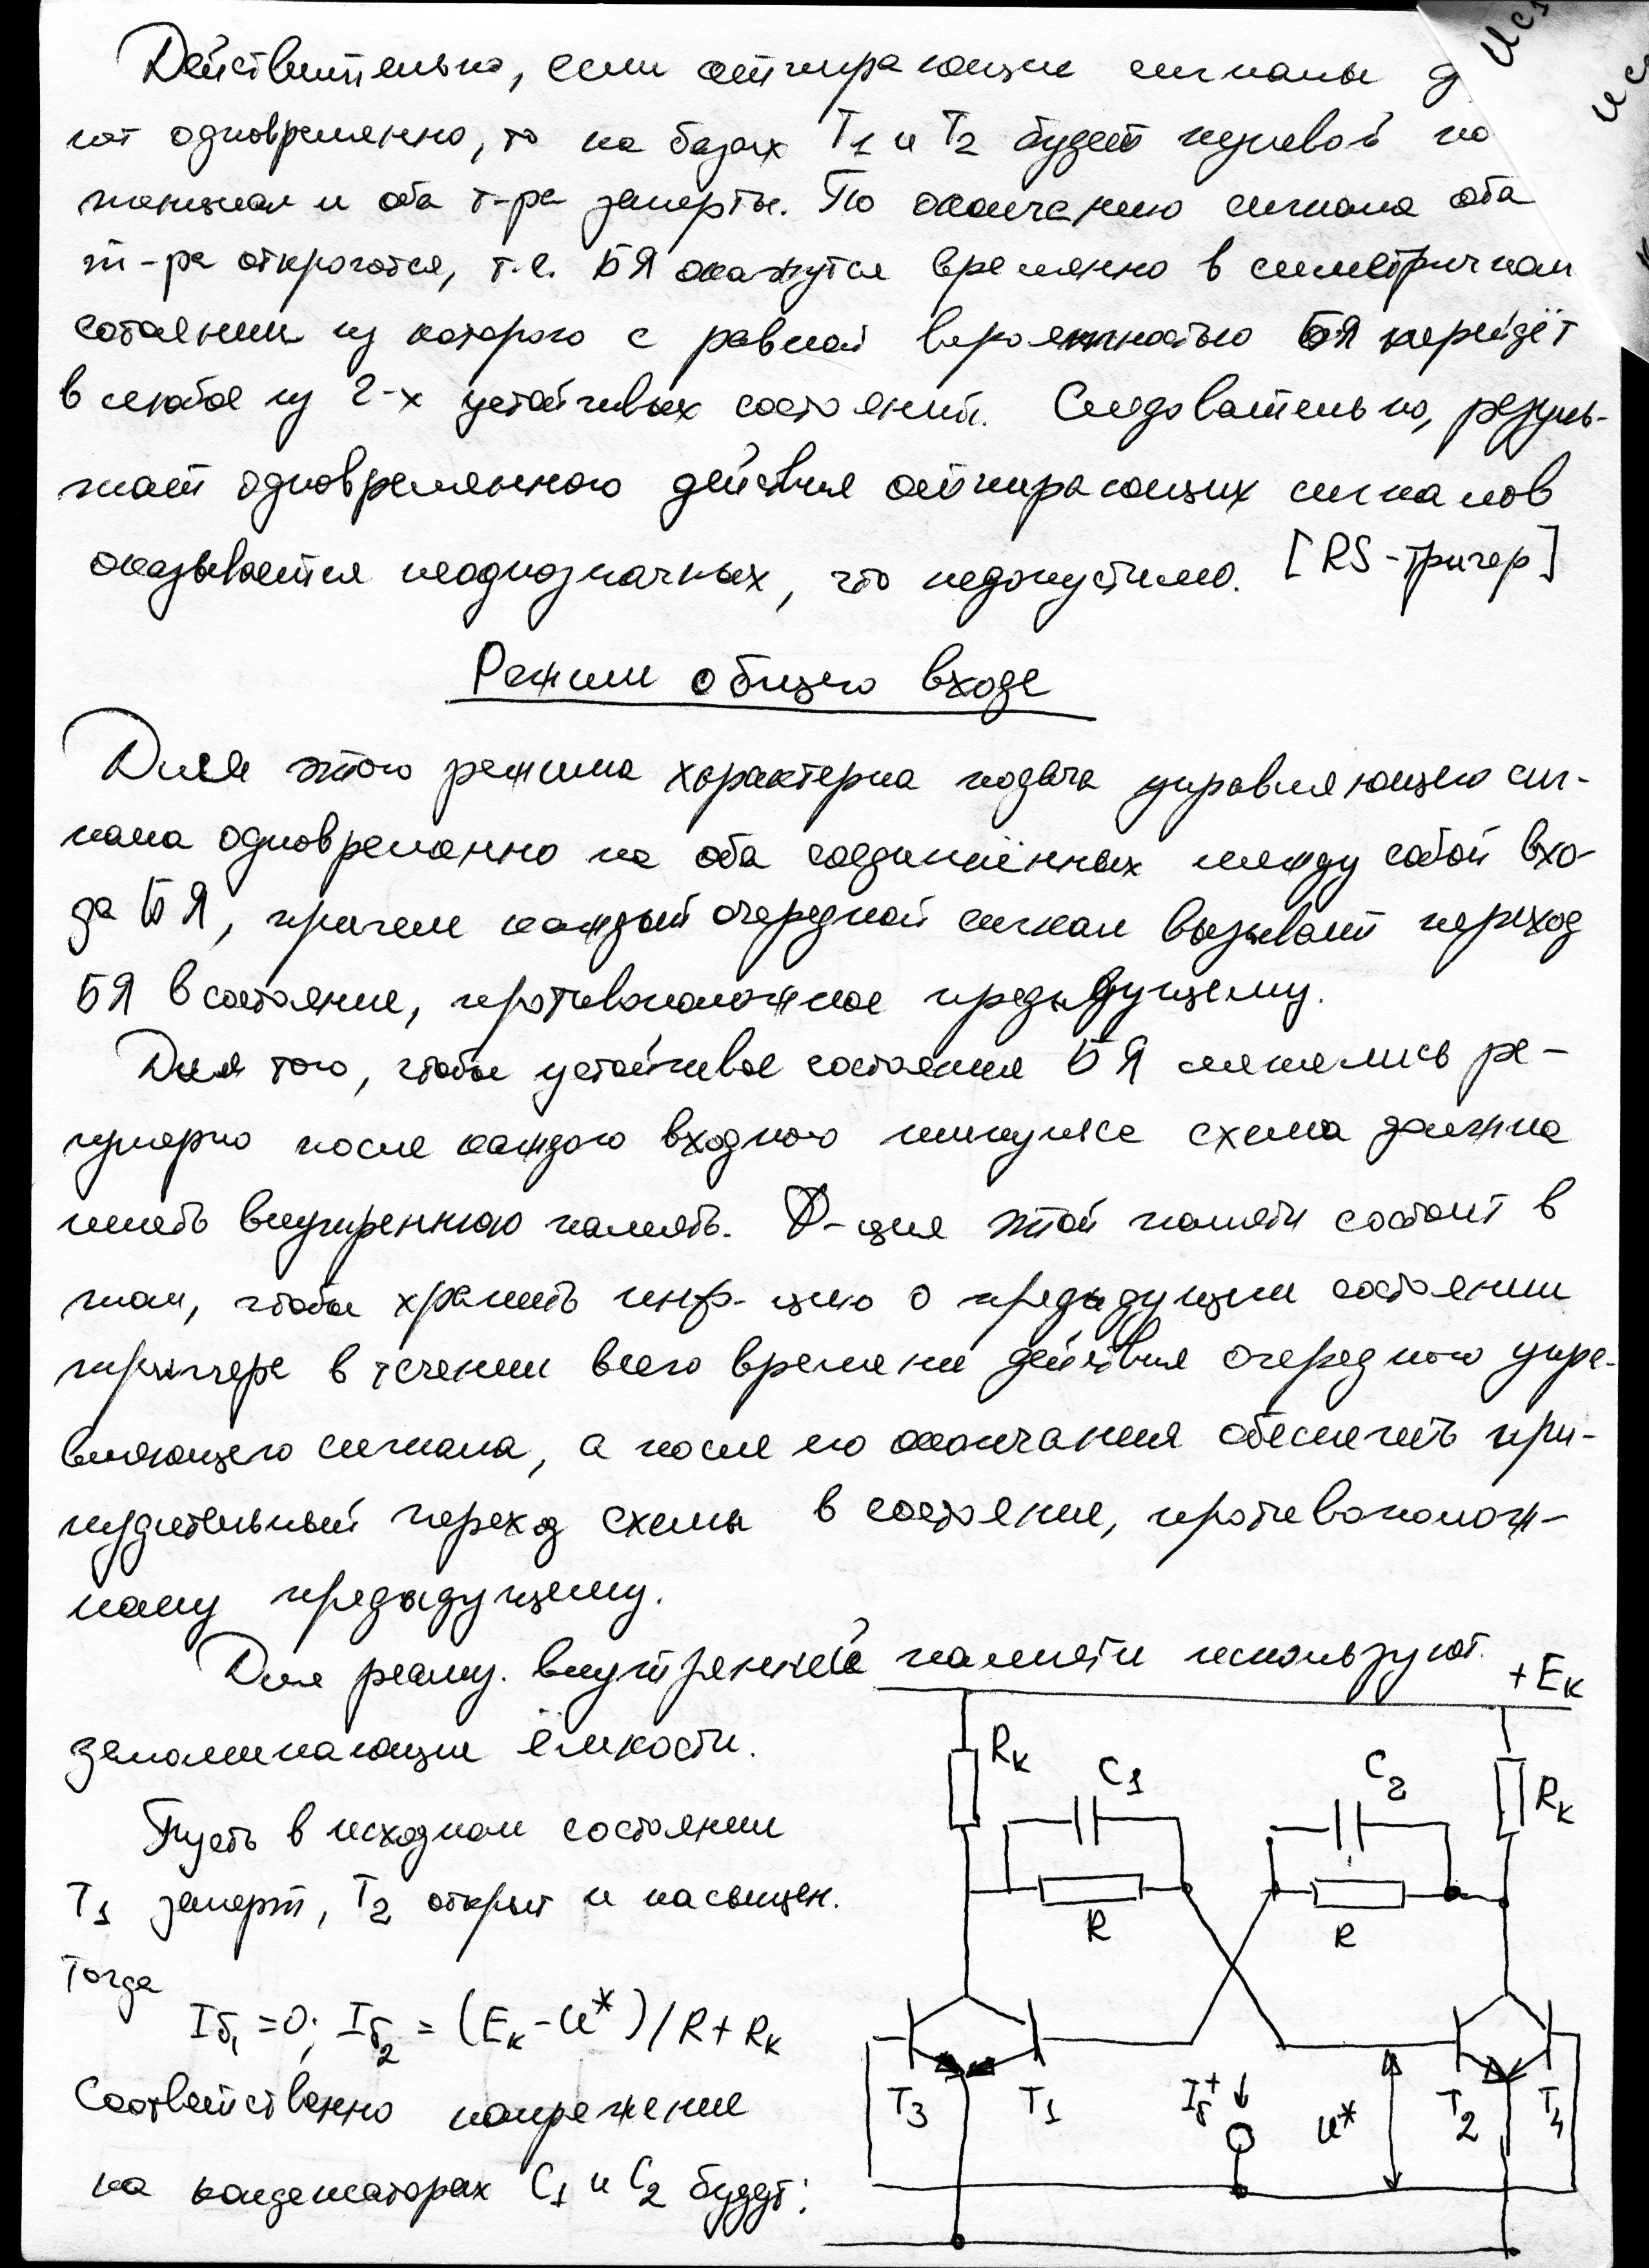 Действительно, если отпирающие сигналы д
ют одновременно, то на базах Т1 и Т2 будет нулевой по
тенциал и оба т-ра заперты. По окончанию сигнала оба
т-ра откроются, т.е. БЯ окажутся временно в симетричном
состоянии из которого с равной вероятностью БЯ перейдёт
в любое из 2-х устойчивых состояний. Следовательно, резуль-
тат одновременного действия отпирающих сигналов
оказывается неоднозначных, что недопустимо. [RS-тригер]
Режим общего входа
Для этого режима характерна подача управляющего сиг-
нала одновременно на оба соединённых между собой вхо-
да БЯ, причем каждый очередной сигнал вызывает переход
БЯ в состояние, противоположное предыдущему.
Для того, чтобы устойчивое состояния БЯ менялись ре-
гулярно после каждого входного импульса схема должна
иметь внутреннюю память. Ф-ция этой памяти состоит в
том, чтобы хранить инф-цию о предыдущем состоянии
триггера в течении всего времени действия очередного упра-
вляющего сигнала, а после его окончания обеспечить при-
нудительный переход схемы в состояние, противополож-
ному предыдущему.
Для реализ. внутренней памяти используют
запоминающие ёмкости.
Пусть в исходном состоянии
Т1 заперт, Т2 открыт и насыщен.
Тогда
Iб1 = 0; Iб2 = (Eк - U*) / R + Rк
Соответственно напряжение
на конденсаторах С1 и С2 будут:
+Eк
Rк
C1
C2
Rк
R
R
T3
T1
Iб+
U*
T2
T4